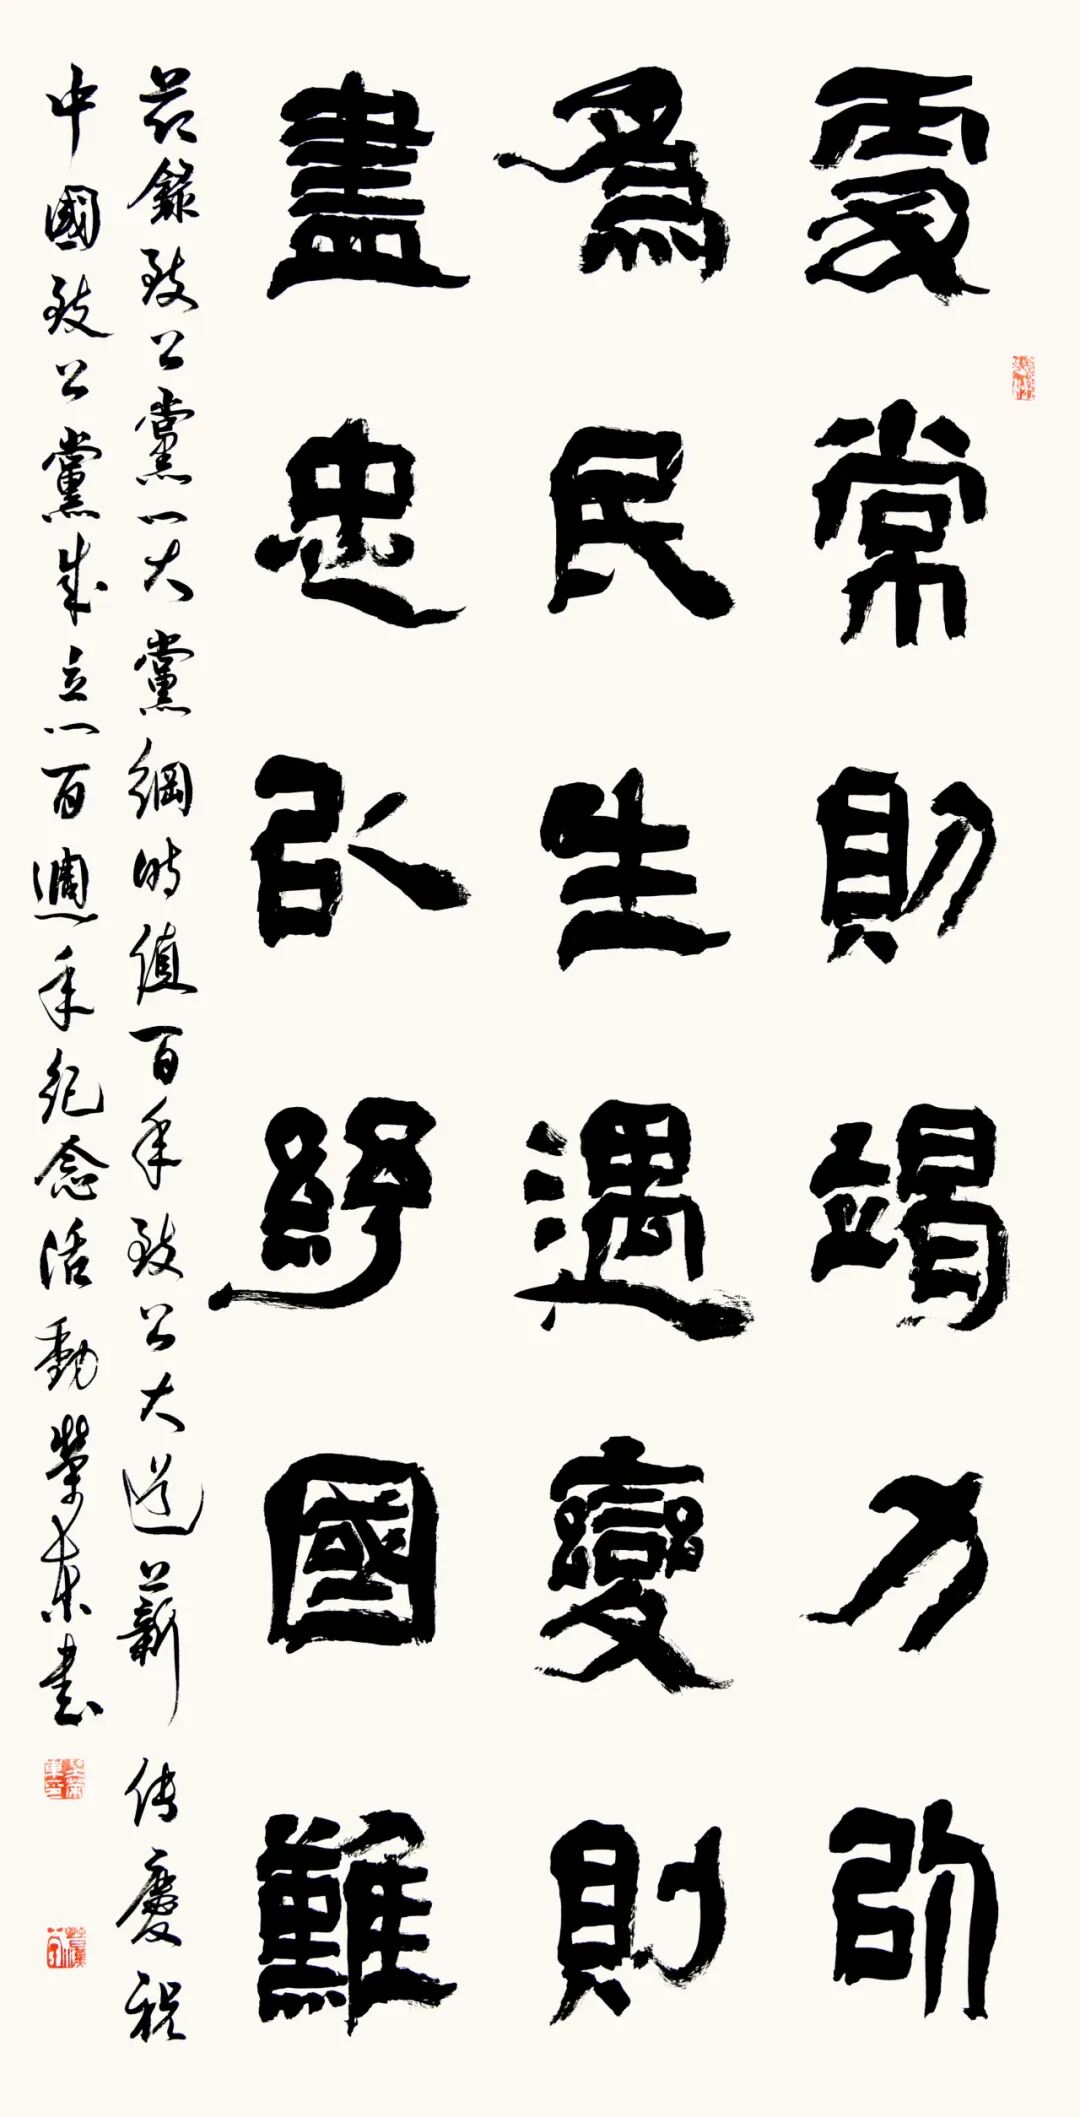 處常則竭力以
為民生遇變則
盡忠以紓國難
茲錄致公黨一大黨綱時值百年致公大道薪传慶祝
中國致公黨成立一百週年紀念活動榮東書